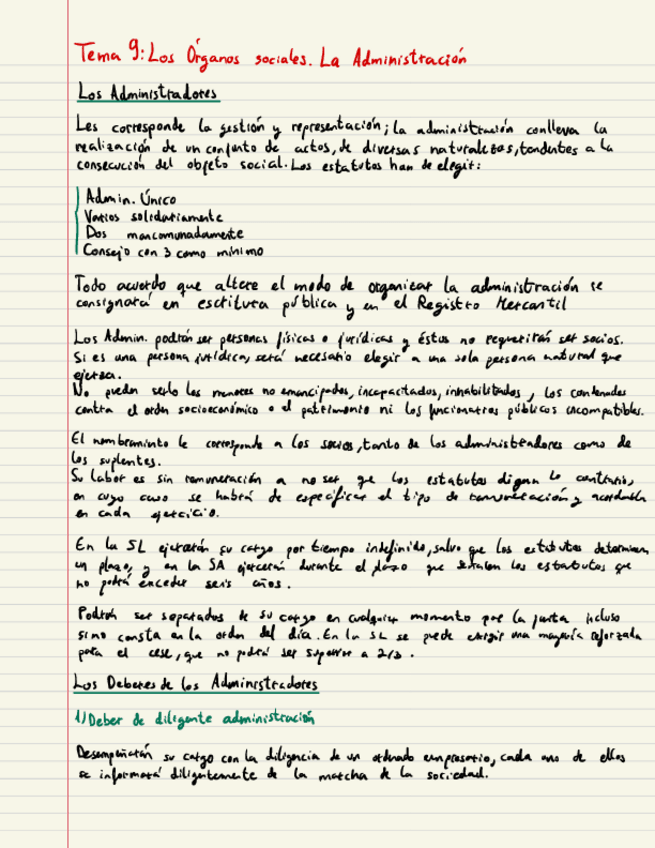 Tema 9: Los Órganos sociales. La Administración
Los Administradores
Les corresponde la gestión y representación; la administración conlleva la
realización de un conjunto de actos, de diversas naturalezas, tendentes a la
consecución del objeto social. Los estatutos han de elegir:
Admin. Único
Varios solidariamente
Dos mancomunadamente
Consejo con 3 como mínimo
Todo acuerdo que altere el modo de organizar la administración se
consignará en escritura pública y en el Registro Mercantil
Los Admin. podrán ser personas físicas o jurídicas y éstas no requerirán ser socios.
Si es una persona jurídica, será necesario elegir a una sola persona natural que
ejerza.
No pueden serlo los menores no emancipados, incapacitados, inhabilitados, los condenados
contra el orden socioeconómico o el patrimonio ni los funcionarios públicos incompatibles.
El nombraminto le corresponde a los socios, tanto de los administradores como de
los suplentes.
Su labor es sin remuneración a no ser que los estatutos digan lo contrario,
en cuyo caso se habrá de especificar el tipo de remuneración y acordarla
en cada ejercicio.
En la SL ejercerán su cargo por tiempo indefinido, salvo que los estatutos determinen
un plazo, y en la SA ejercerán durante el plazo que señalen los estatutos que
no podrá exceder seis años.
Podrán ser separados de su cargo en cualquier momento por la junta incluso
si no consta en la orden del día. En la SL se puede exigir una mayoría reforzada
para el cese, que no podrá ser superior a 2/3.
Los Deberes de los Administradores
1) Deber de diligente administración
Desempeñarán su cargo con la diligencia de un ordenado empresario, cada uno de ellos
se informará diligentemente de la marcha de la sociedad.